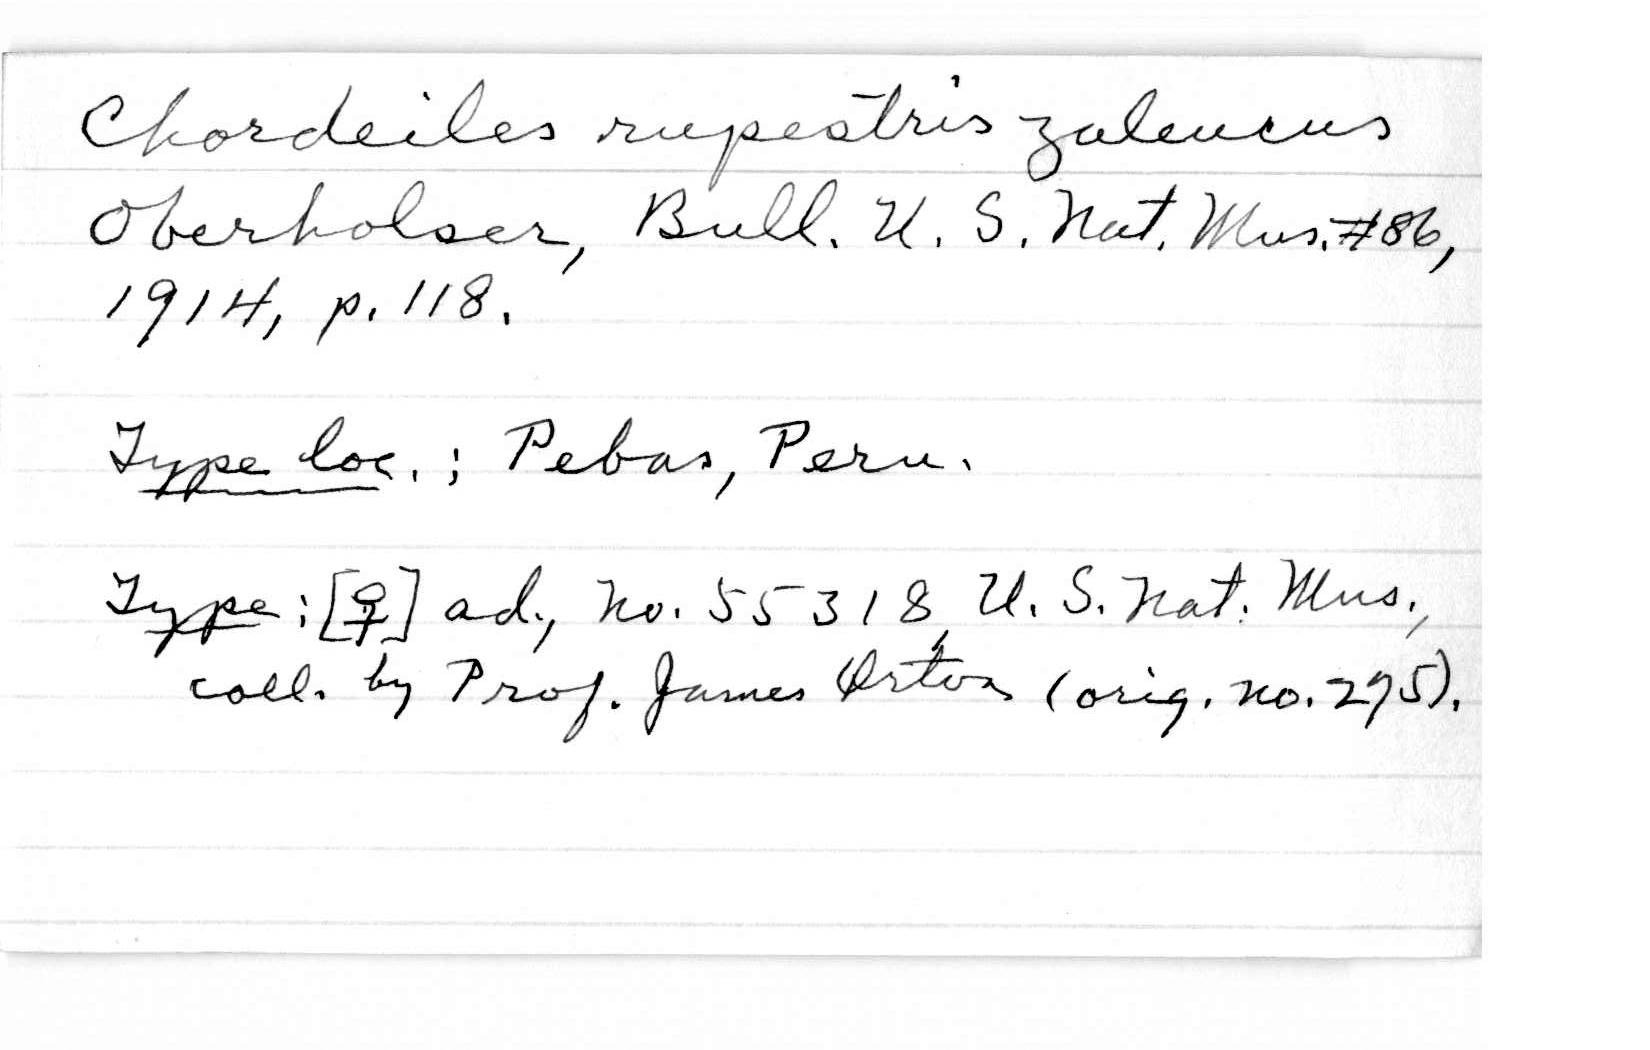 Chordeiles rupestris zaleucus
Oberholser, Bull. U. S. Nat. Mus. #86,
1914, p. 118.
Type loc.; Pebas, Peru.
Type: [♀] ad., No. 55318, U. S. Nat. Mus.,
coll. by Prof. James Orton (orig. no. 295).